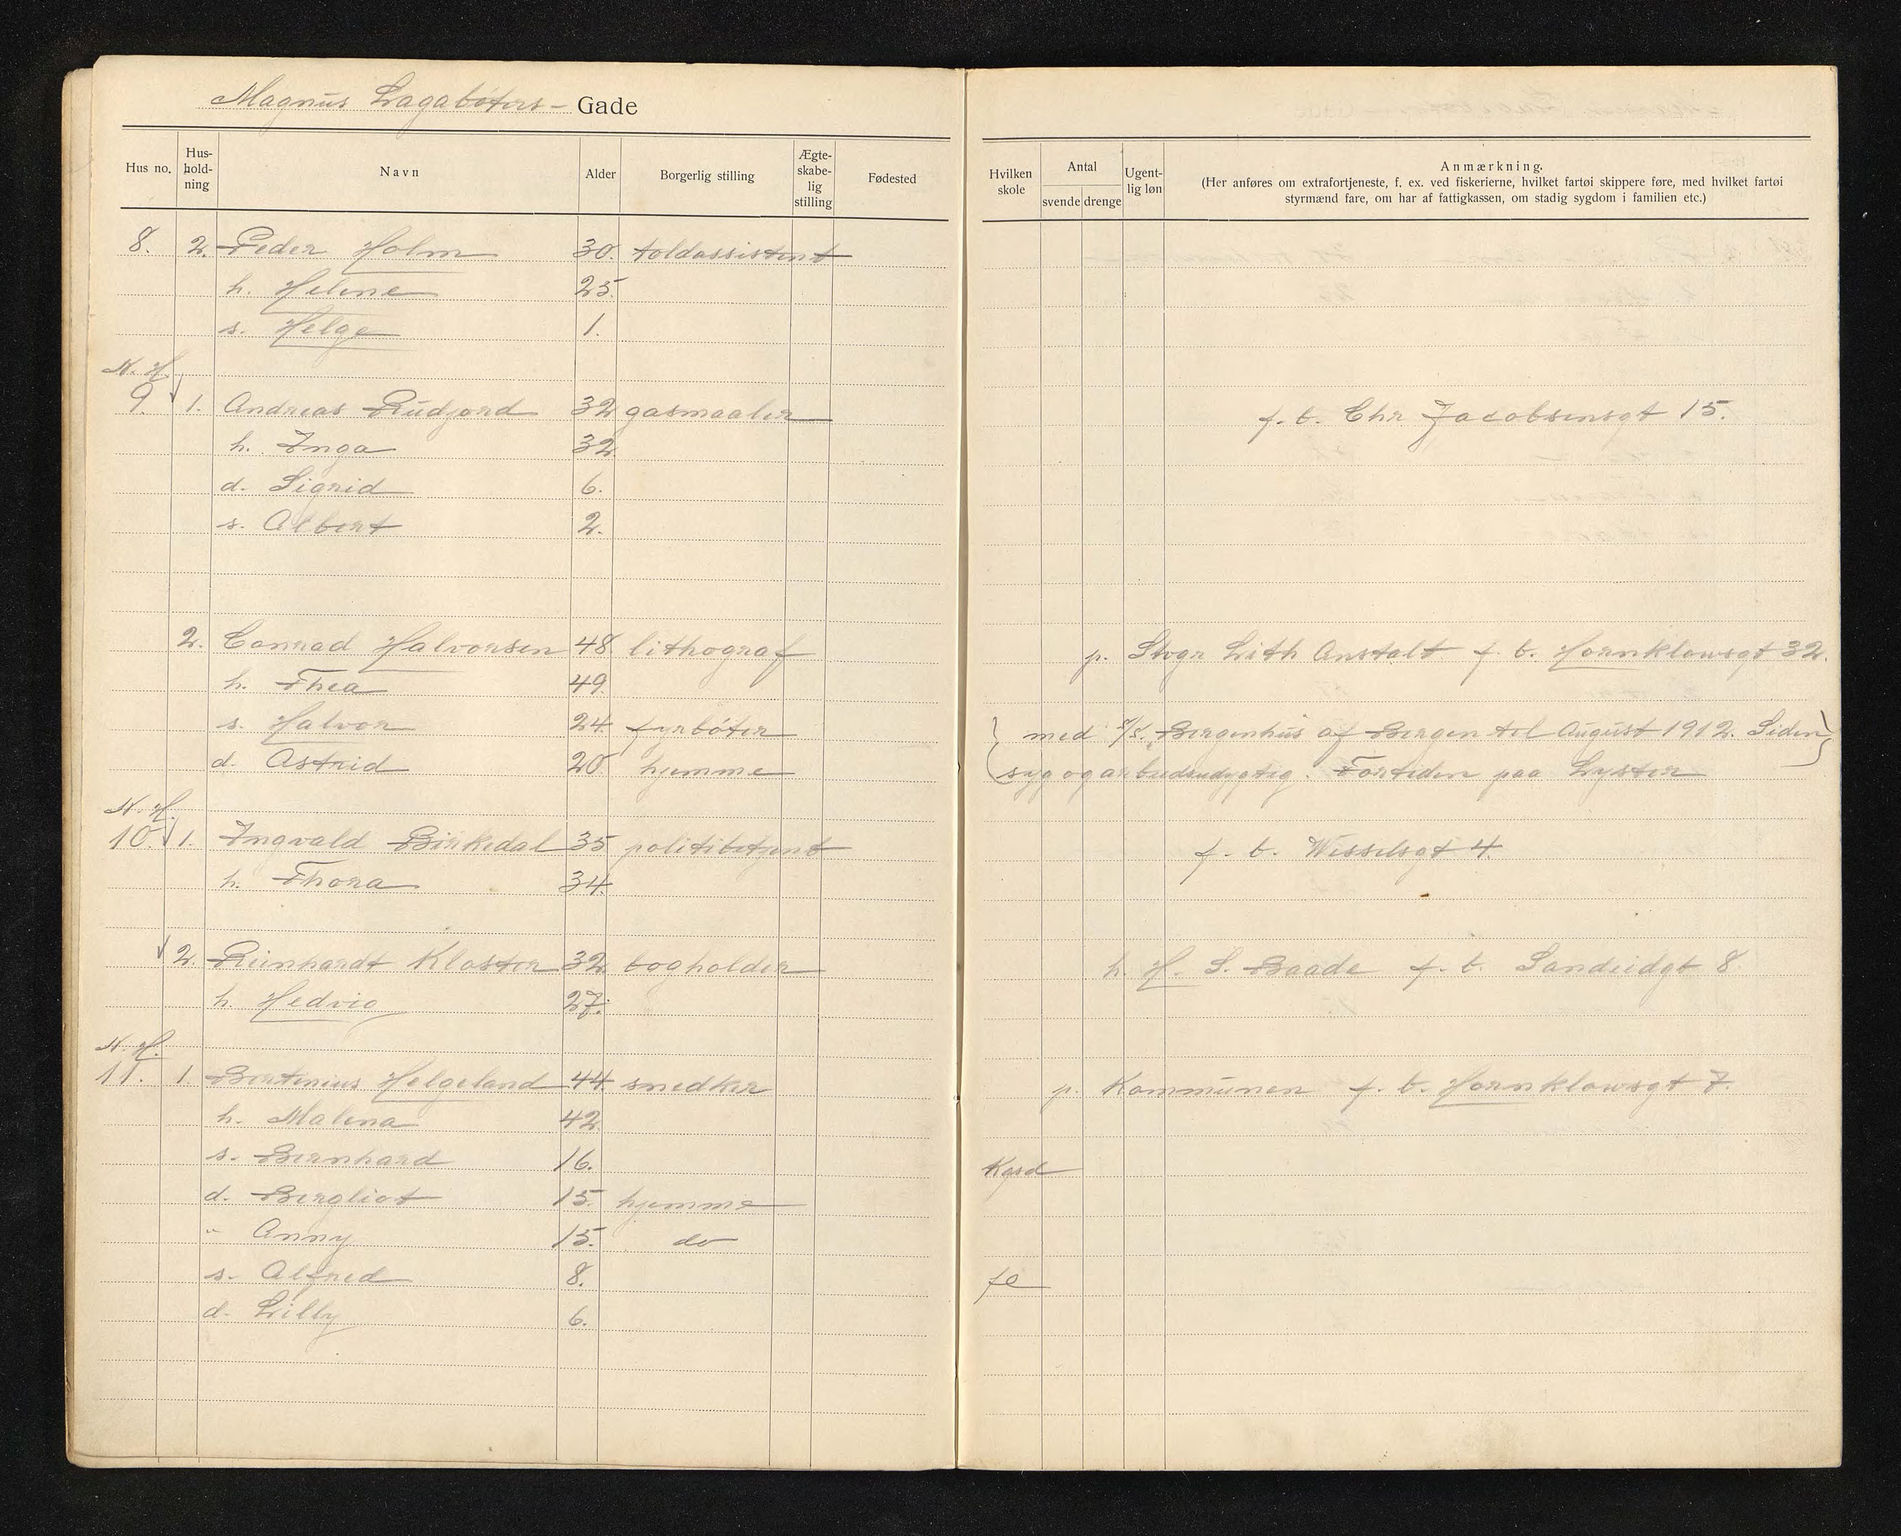 Magnus Lagabøters- Gade
Hus no. Hus-hold-ning Navn Alder Borgerlig stilling Ægte-skabe-lig stilling Fødested Hvilken skole Antal svende drenge Ugent-lig løn Anmærkning.
(Her anføres om extrafortjeneste, f. ex. ved fiskerierne, hvilket fartøi skippere føre, med hvilket fartøi
styrmænd fare, om har af fattigkassen, om stadig sygdom i familien etc.)
8. 2. Peder Holm 30. toldassistent
h. Helene 25.
s. Helge 1.
N. H.
9. 1. Andreas Rudjord 32 gasmaaler f. b. Chr Jacobsensgt 15.
h. Inga 32
d. Sigrid 6.
s. Albert 2.
2. Conrad Halvorsen 48. lithograf p. Stvgr Lith Anstalt f. b. Hornklowsgt 32.
h. Thea 49.
s. Halvor 24. fyrbøter med s/s. Bergenhus af Bergen til August 1912. Siden
d. Astrid 20 hjemme syg og arbeidsudygtig. Fortiden paa Lyster
N. H.
10. 1. Ingvald Birkedal 35 politibetjent f. b. Wesselsgt 4.
h. Thora 34.
2. Reinhardt Kloster 32. bogholder h. H. S. Baade f. b. Sandeidgt 8.
h. Hedvig 27.
N. H.
11. 1. Bertinius Helgeland 44. snedker p. Kommunen f. b. Hornklowsgt 7.
h. Malena 42.
s. Bernhard 16. Kgsd
d. Bergliot 15. hjemme
" Anny 15. do
s. Alfred 8. fe
d. Lilly 6.